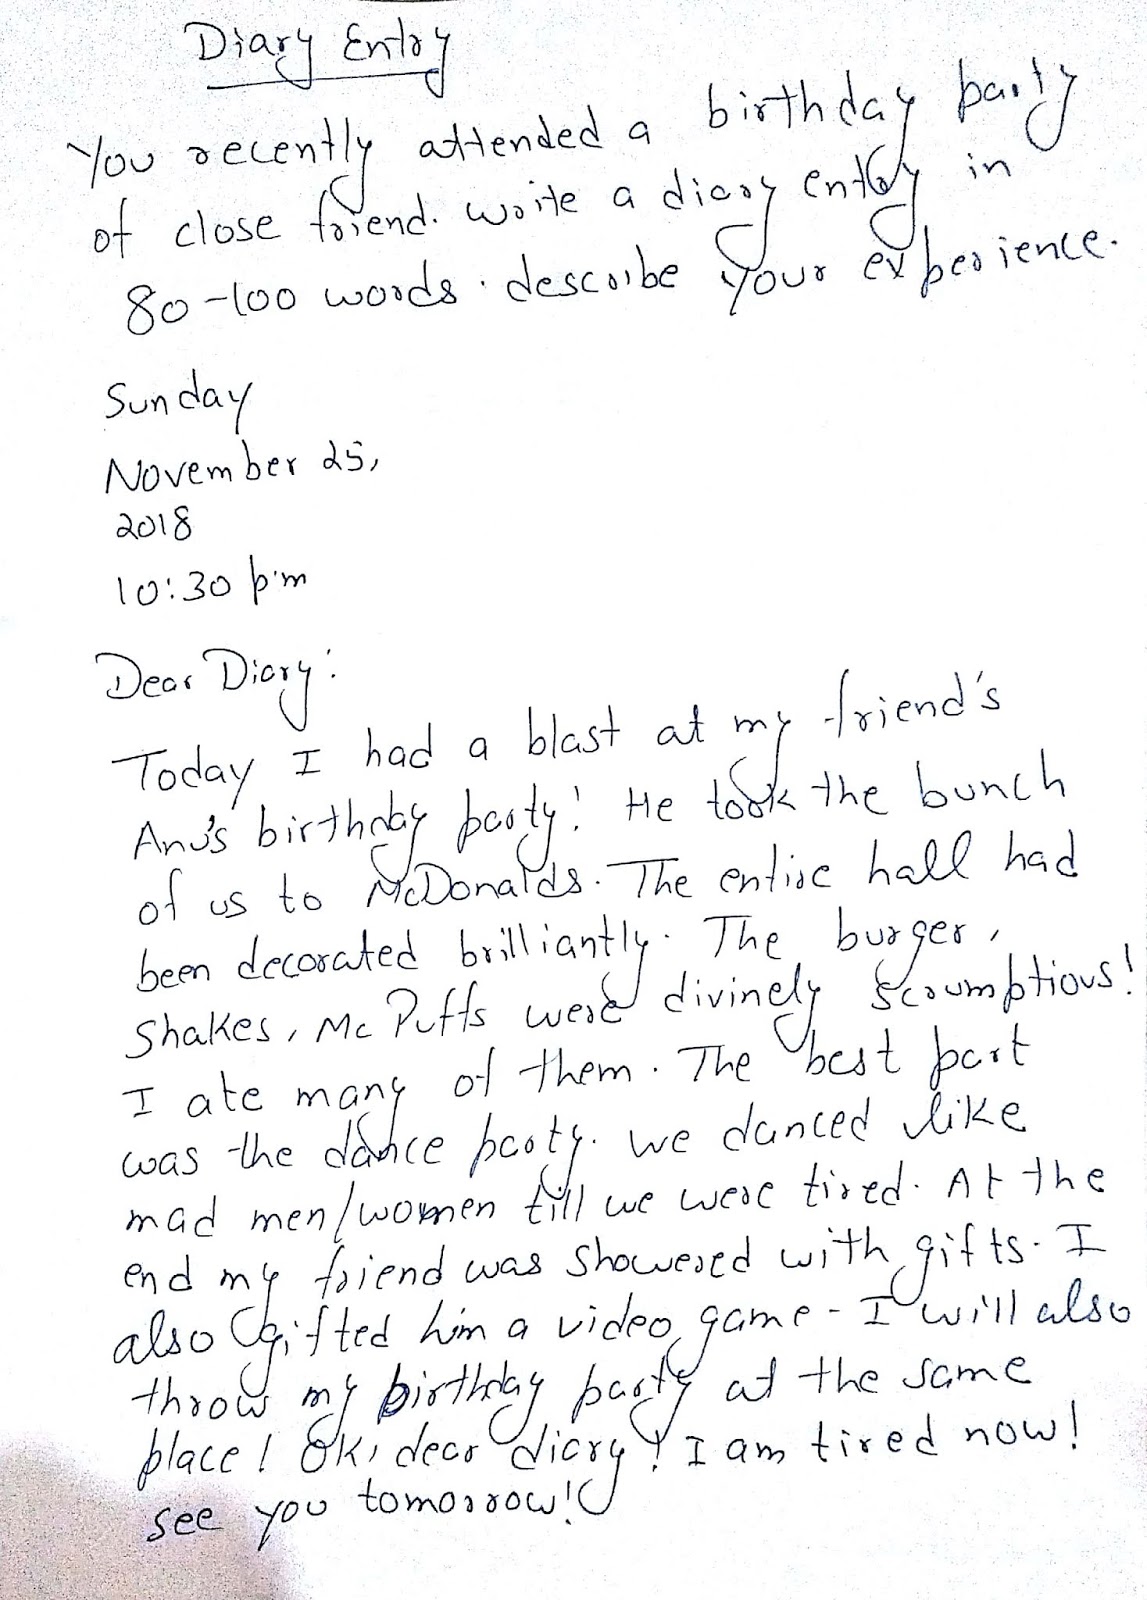 Diary Entry
You recently attended a birthday party
of close friend. write a diary entry in
80-100 words. describe your experience.
Sunday
November 25,
2018
10:30 p.m
Dear Diary:
Today I had a blast at my friend's
Anu's birthday party! He took the bunch
of us to McDonalds. The entire hall had
been decorated brilliantly. The burger,
Shakes, Mc Puffs were divinely scrumptious!
I ate many of them. The best part
was the dance party. we danced like
mad men/women till we were tired. At the
end my friend was showered with gifts. I
also gifted him a video game - I will also
throw my birthday party at the same
place! Ok, dear diary! I am tired now!
see you tomorrow!